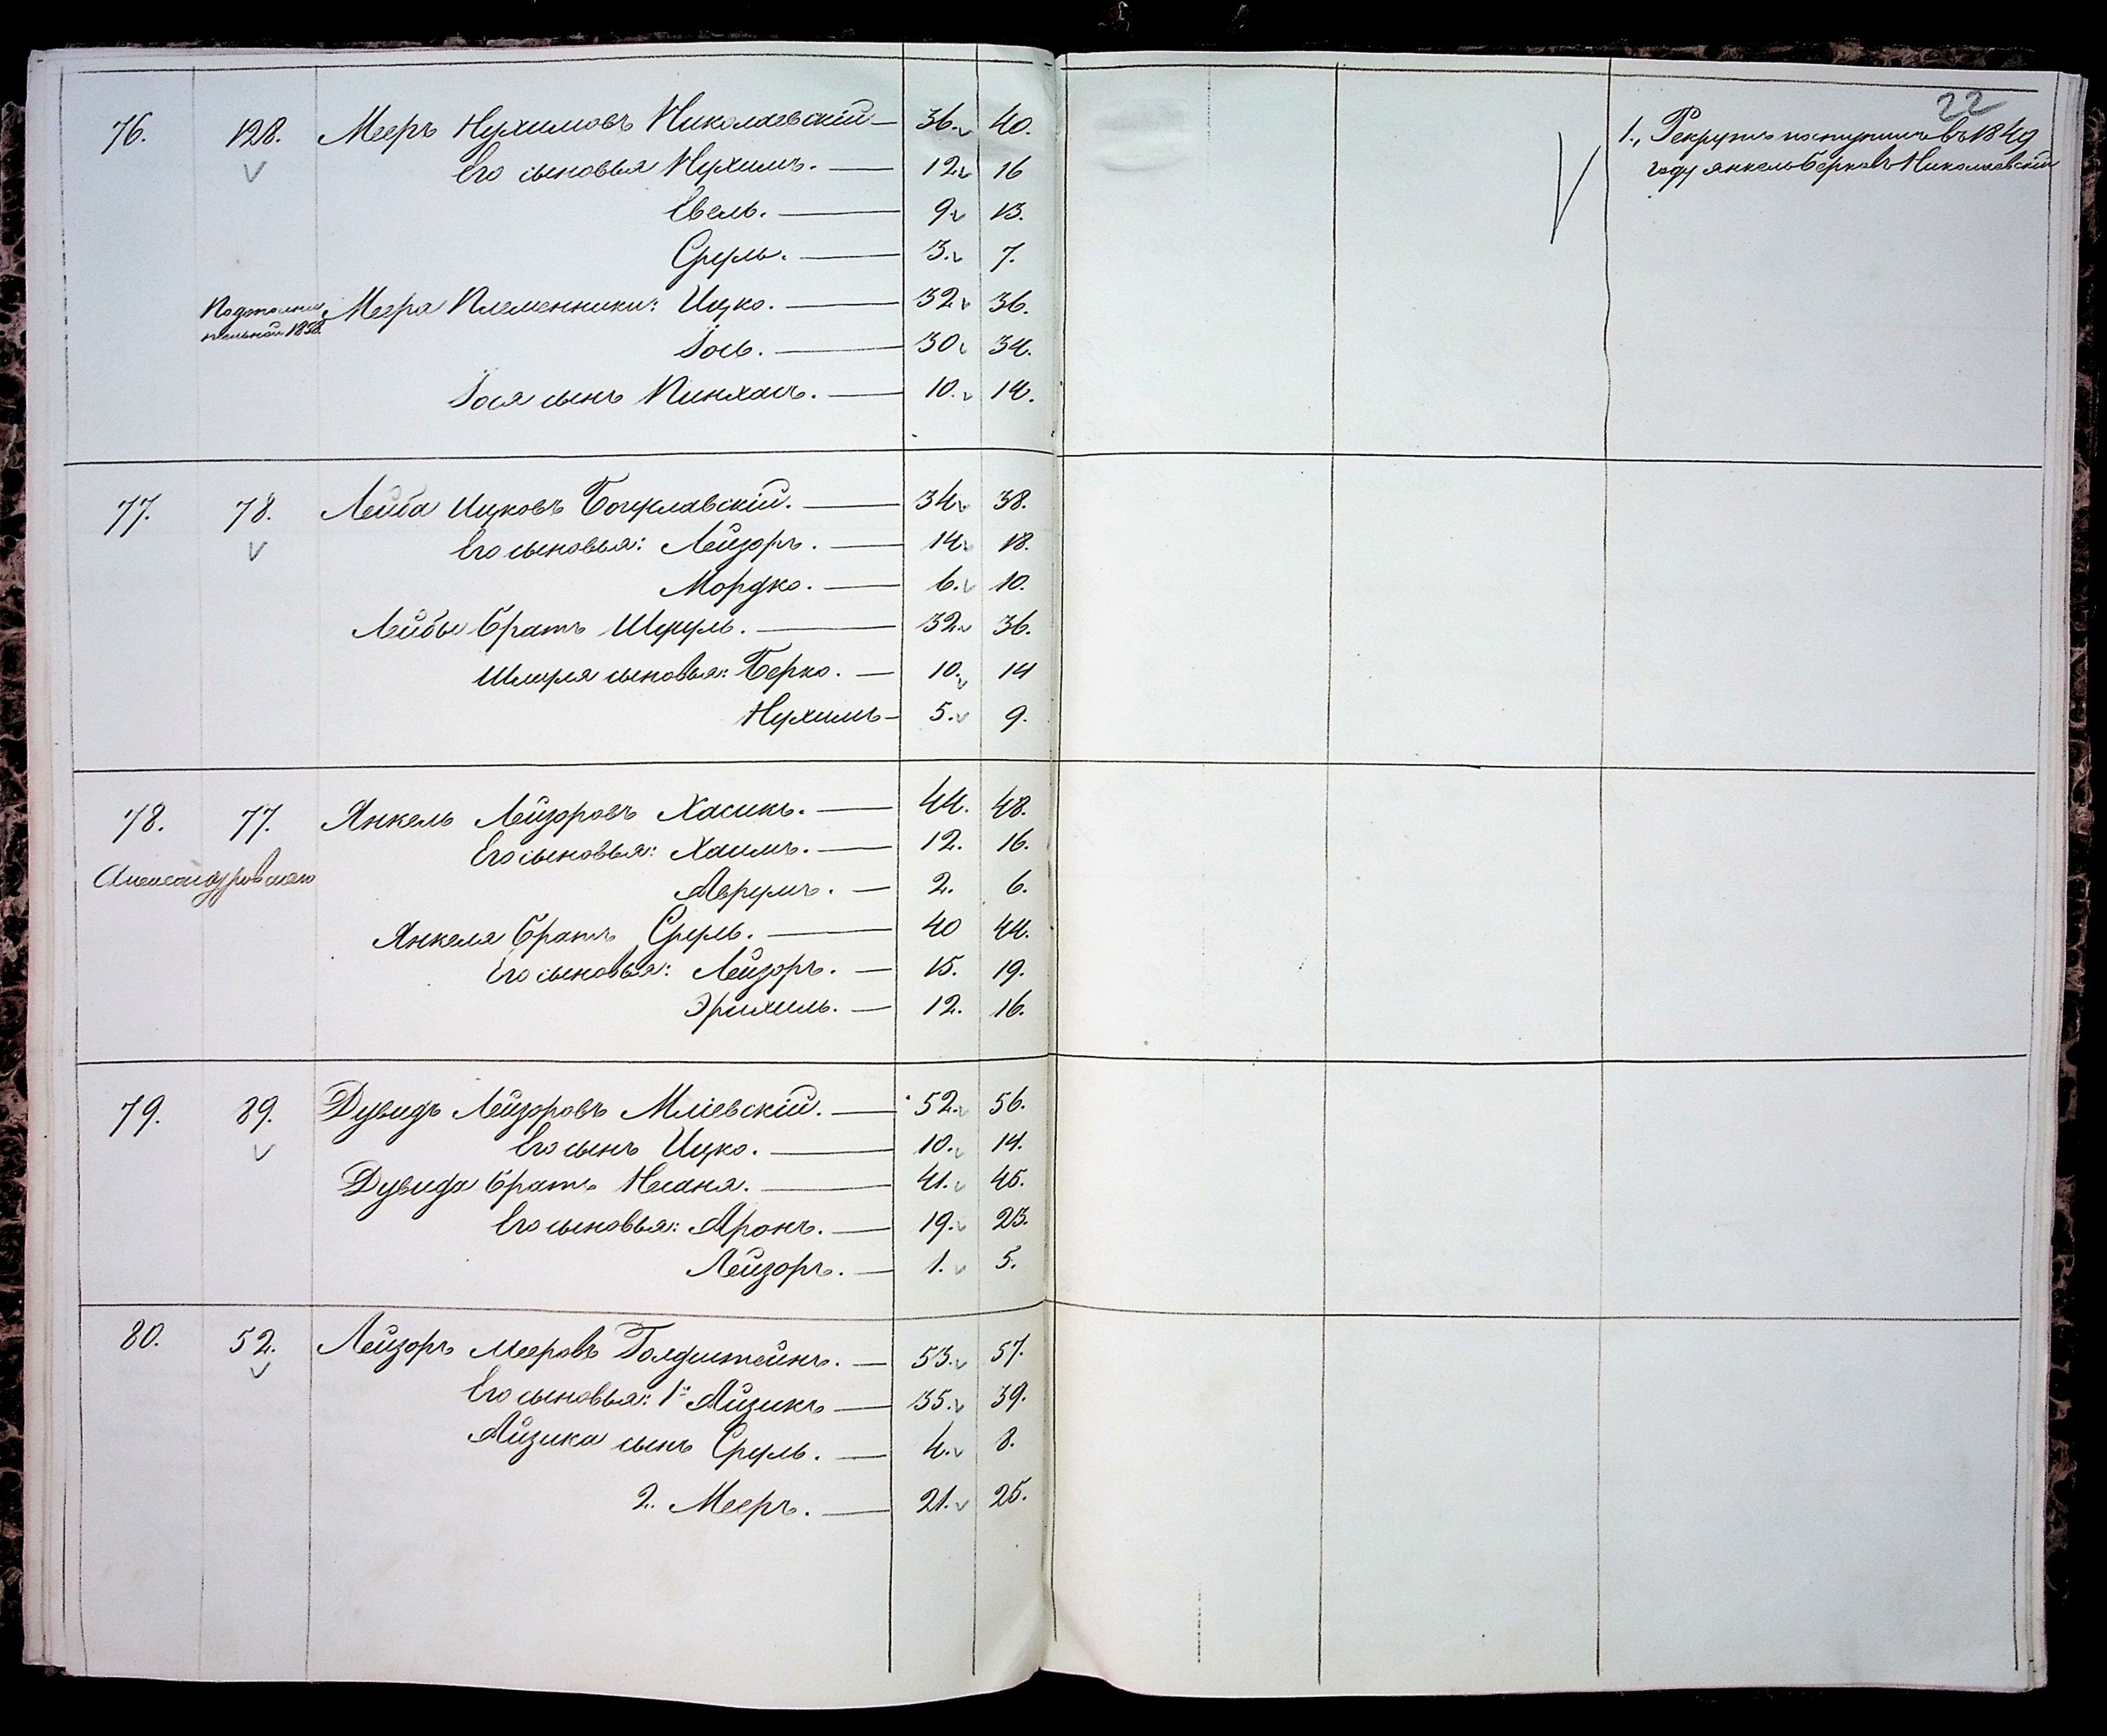 22
76. 128. Мееръ Нухимовъ Николаевскій — 36. 40.
1., Рекрутъ поступилъ въ 1849
году Янкель Берковъ Николаевскій
Его сыновья Нухимъ. — 12. 16
Евель. — 9. 13.
Сруль. — 3. 7.
Меера Племенники: Ицко. — 32. 36.
1858
Іось. — 30. 34.
Іося сынъ Пинхасъ. — 10. 14.
77. 78. Лейба Ицковъ Богуславскій. — 34. 38.
Его сыновья: Лейзоръ. — 14. 18.
Мордко. — 6. 10.
Лейбы братъ Шмуль. — 32. 36.
Шмуля сыновья: Берко. — 10. 14
Нухимъ — 5. 9.
78. 77. Янкель Лейзоровъ Хасикъ. — 44. 48.
Его сыновья: Хаимъ. — 12. 16.
Александровскаго
Аврумъ. — 2. 6.
Янкеля братъ Сруль. — 40 44.
Его сыновья: Лейзоръ. — 15. 19.
Эрихиль. — 12. 16.
79. 89. Дувидъ Лейзоровъ Мліевскій. — 52. 56.
Его сынъ Ицко. — 10. 14.
Дувида братъ Несаня. — 41. 45.
Его сыновья: Аронъ. — 19. 23.
Лейзоръ. — 1. 5.
80. 52. Лейзоръ Мееровъ Голдштейнъ. — 53. 57.
Его сыновья: 1й Айзикъ — 35. 39.
Айзика сынъ Сруль. — 4. 8.
2. Мееръ. — 21. 25.